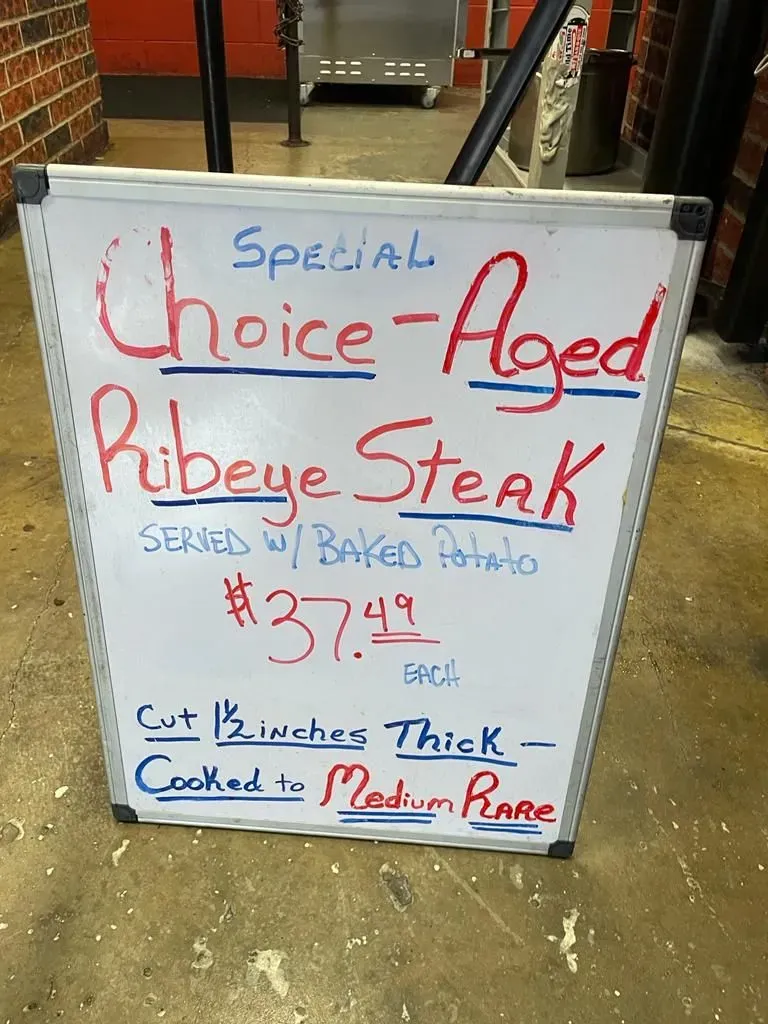 SPECIAL
Choice-Aged
Ribeye Steak
SERVED W/ BAKED Potato
$37.49
EACH
Cut 1½ inches Thick -
Cooked to Medium Rare